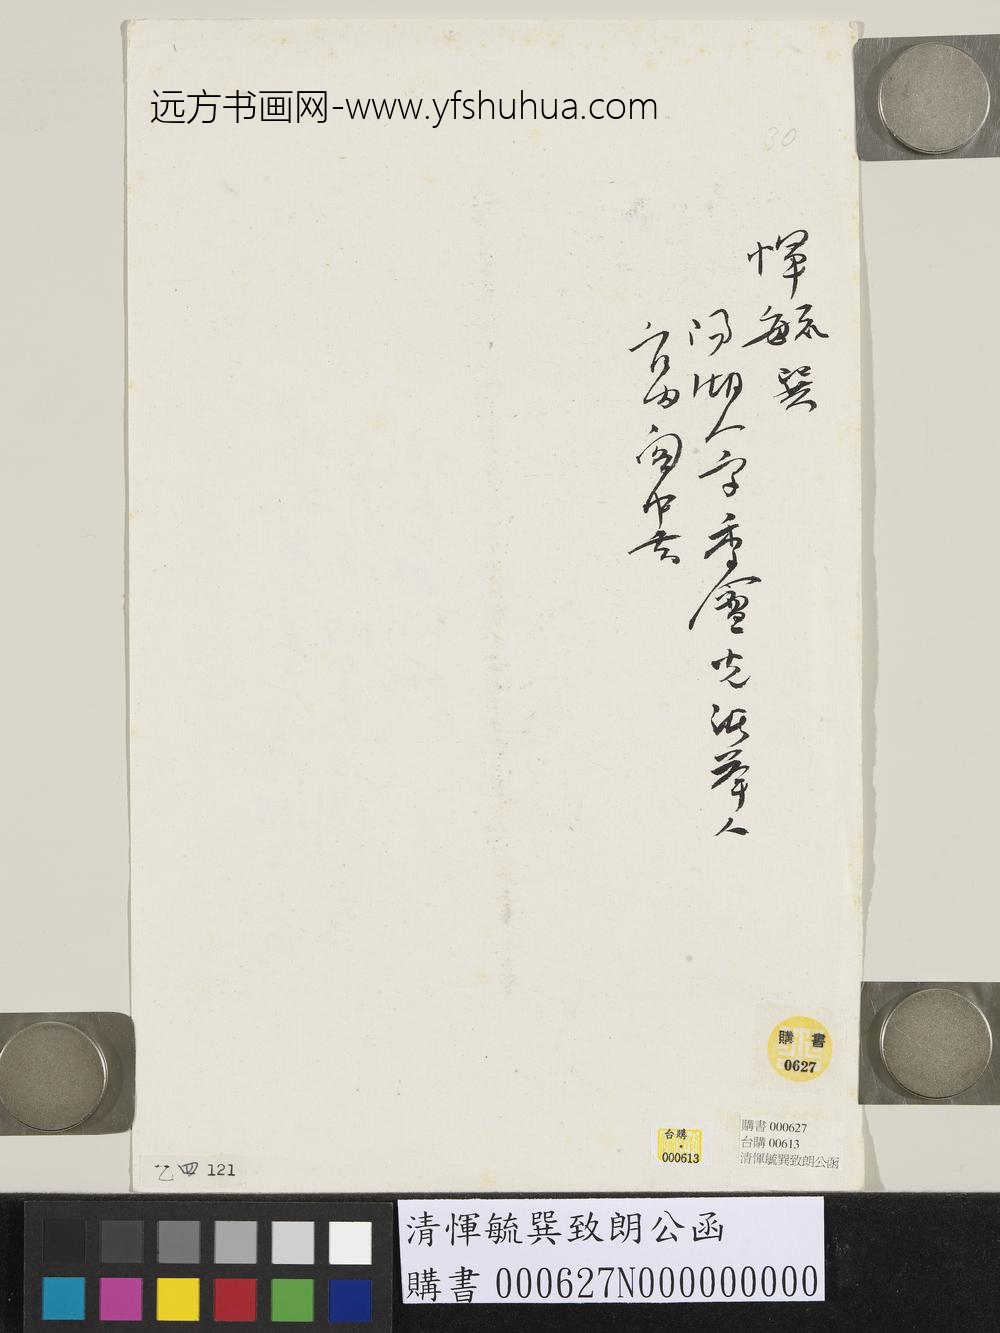 远方书画网-www.yfshuhua.com
30
惲毓巽
陽湖人字季盦光緒舉人
官内閣中書
購書
0627
台購
000613
購書 000627
台購 00613
清惲毓巽致朗公函
乙四 121
清惲毓巽致朗公函
購書 000627N000000000